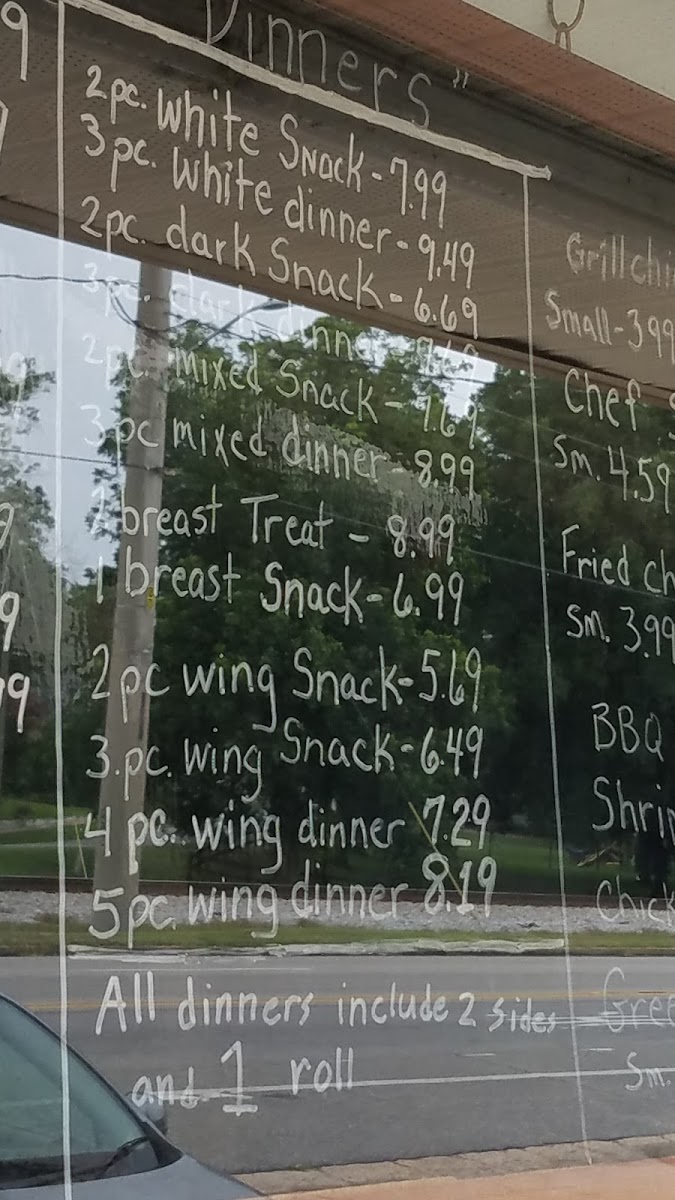 Dinners"
2pc. white Snack - 7.99
3pc. white dinner - 9.49
2pc. dark Snack - 6.69
3pc. dark dinner
2pc. mixed Snack - 7.69
3pc mixed dinner - 8.99
2 breast Treat - 8.99
1 breast Snack - 6.99
2pc wing Snack - 5.69
3.pc. wing Snack - 6.49
4 pc. wing dinner 7.29
5pc. wing dinner 8.19
All dinners include 2 sides
and 1 roll
Grill
Small - 3 99
Chef
Sm. 4.59
Fried
Sm. 3.99
BBQ
Sm.